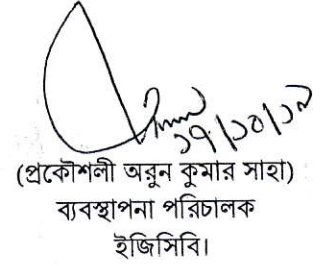 ১৭/১০/১৯
(প্রকৌশলী অরুন কুমার সাহা)
ব্যবস্থাপনা পরিচালক
ইজিসিবি।